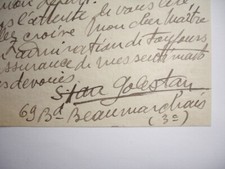 mon départ.
l'attente je vous
les croire mon cher Maître
l'admiration de toujours
assurance de mes sentiments
dévoués.
Stan Golestan
69 Bd Beaumarchais
(3e)